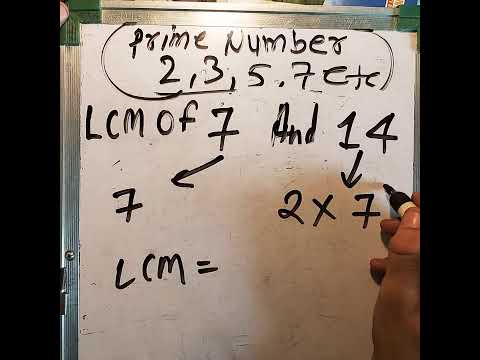 Prime Number
2, 3, 5. 7 Etc
LCM OF 7 And 14
7 2 X 7
LCM =